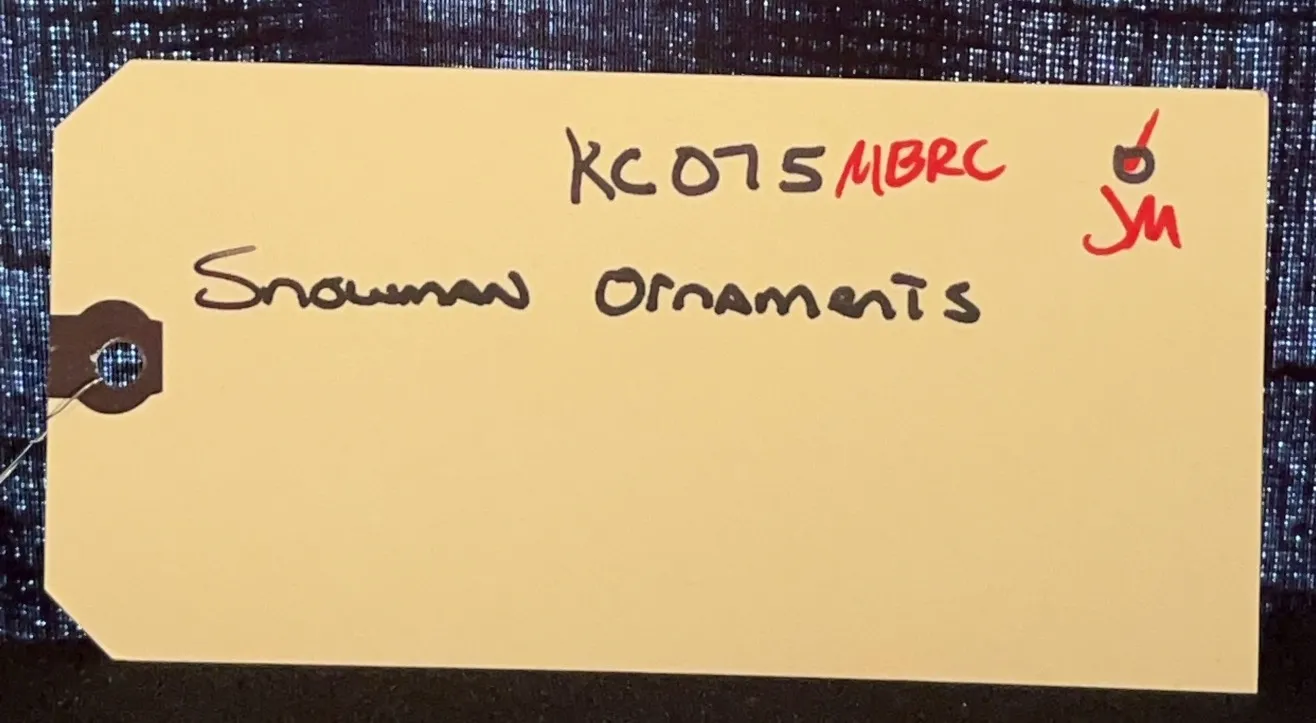 KC075 MBRC
JM
Snowman Ornaments